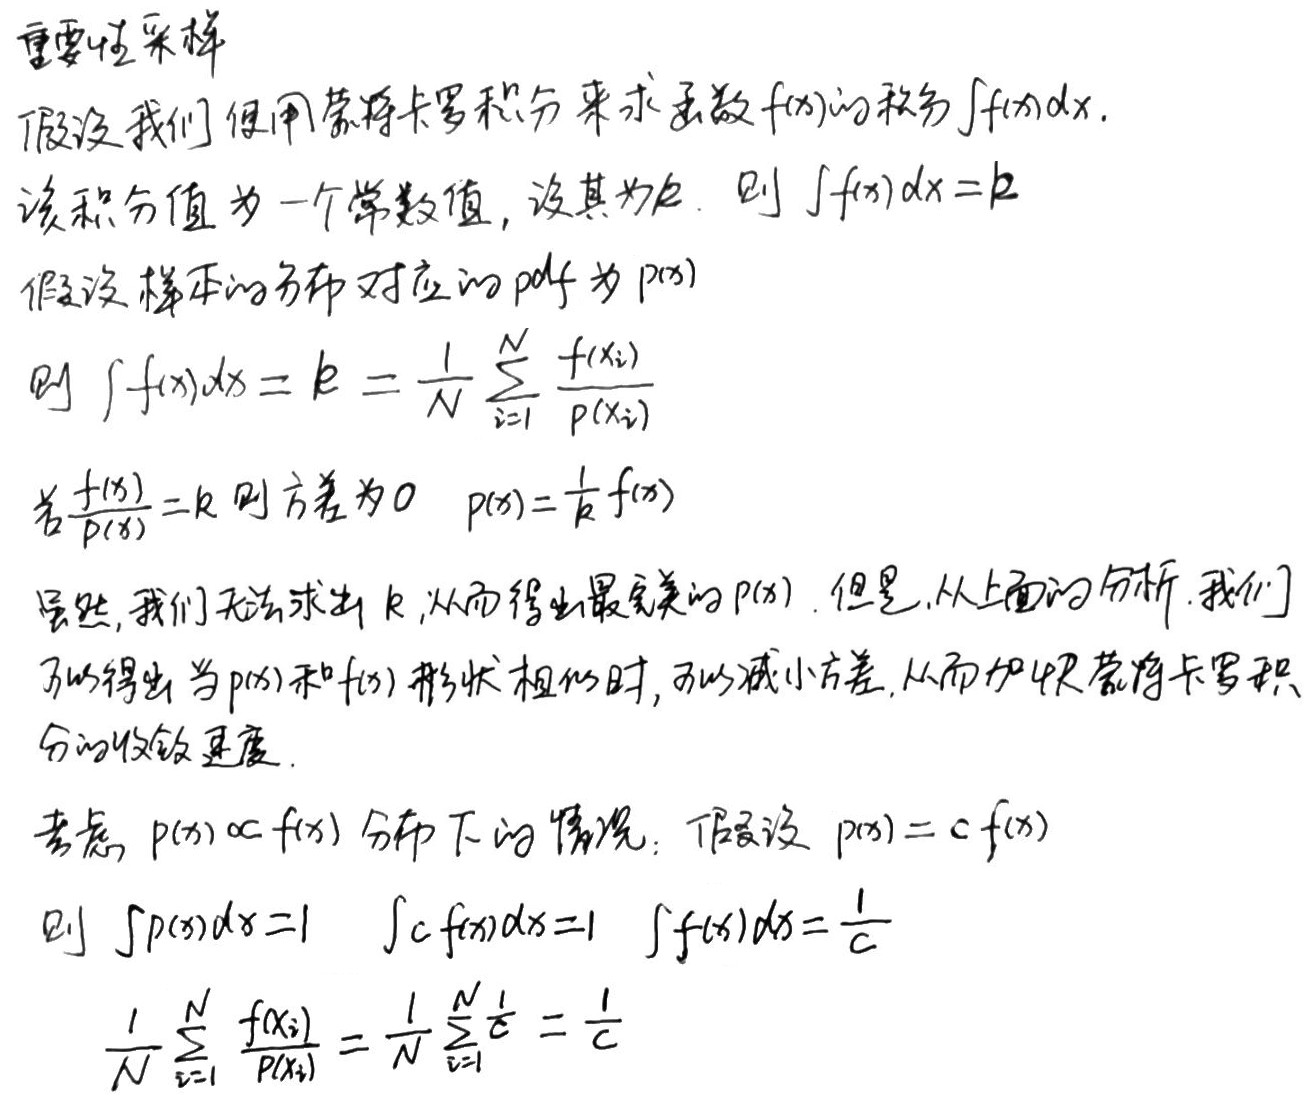 重要性采样
假设我们使用蒙特卡罗积分来求函数f(x)的积分∫f(x)dx.
该积分值为一个常数值,设其为k. 则 ∫f(x)dx=k
假设样本的分布对应的pdf为p(x)
则 ∫f(x)dx = k = \frac{1}{N} \sum_{i=1}^{N} \frac{f(x_i)}{p(x_i)}
若 \frac{f(x)}{p(x)} = k 则方差为0 p(x) = \frac{1}{k} f(x)
虽然,我们无法求出k,从而得出最完美的p(x).但是,从上面的分析.我们
可以得出当p(x)和f(x)形状相似时,可以减小方差,从而加快蒙特卡罗积
分的收敛速度.
考虑 p(x)∝f(x) 分布下的情况: 假设 p(x) = c f(x)
则 ∫p(x)dx=1 ∫c f(x)dx=1 ∫f(x)dx=\frac{1}{c}
\frac{1}{N} \sum_{i=1}^{N} \frac{f(x_i)}{p(x_i)} = \frac{1}{N} \sum_{i=1}^{N} \frac{1}{c} = \frac{1}{c}